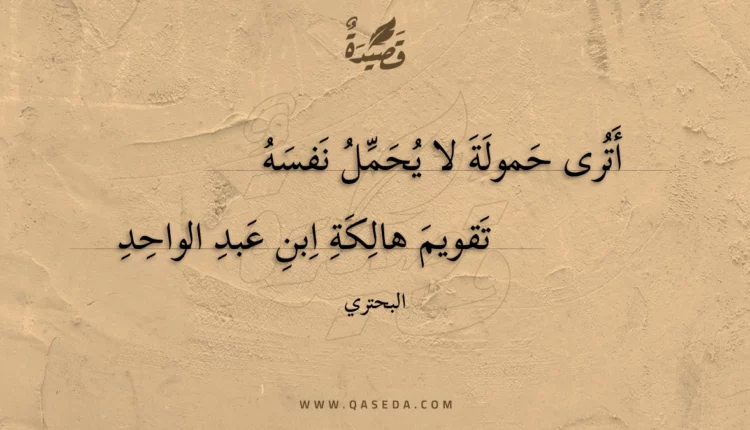 قَصِيدَةٌ
أَتُرى حَمولَةَ لا يُحَمِّلُ نَفسَهُ
تَقويمَ هالِكَةِ اِبنِ عَبدِ الواحِدِ
البحتري
WWW.QASEDA.COM